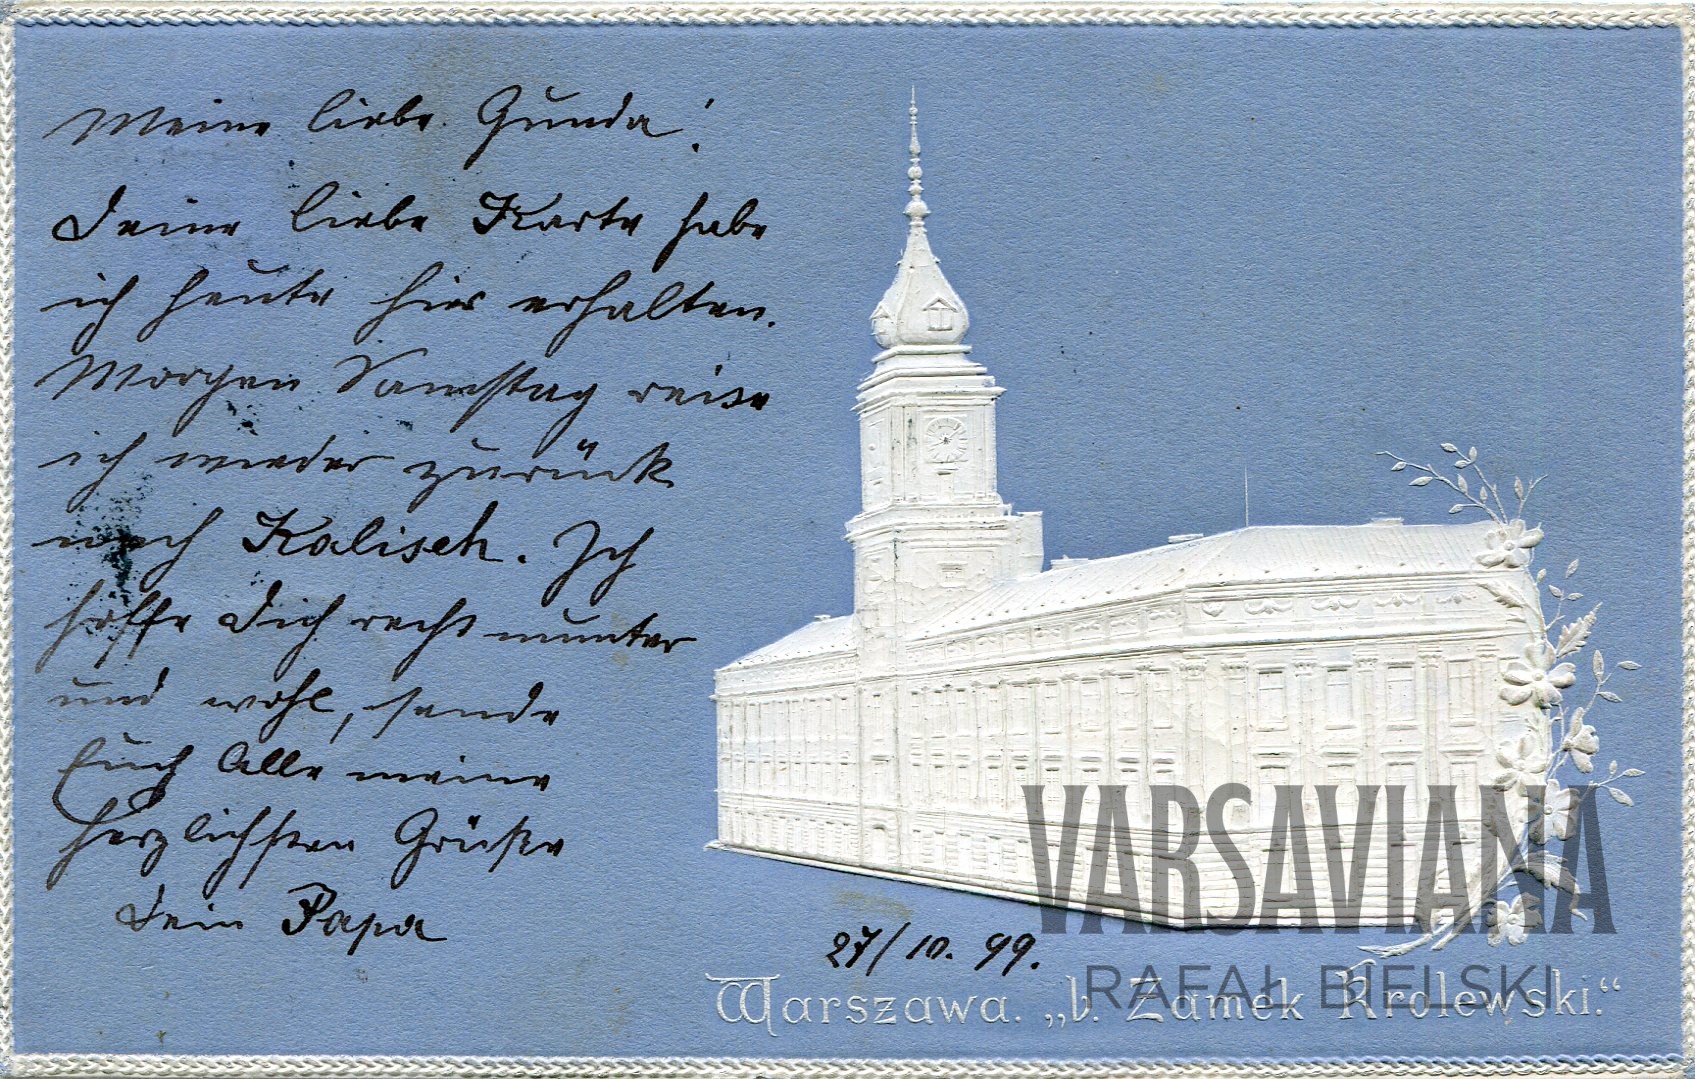 Meine liebe Gunda!
Deine liebe Karte habe
ich heute hier erhalten.
Morgen Samstag reise
ich wieder zurück
nach Kalisch. Ich
hoffe Dich recht munter
und wohl, sende
Euch Alle meine
herzlichsten Grüße
Dein Papa
27/10. 99.
Warszawa. „b. Zamek Krolewski.“
VARSAVIANA
RAFAŁ BIELSKI